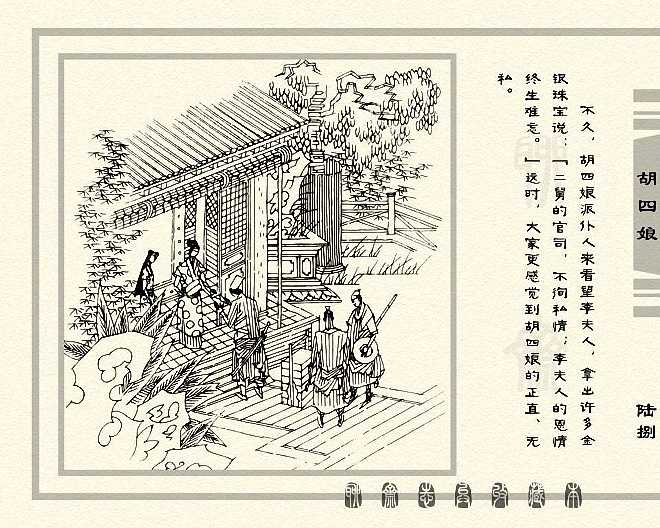 不久，胡四娘派仆人来看望李夫人，拿出许多金
银珠宝说：“二舅的官司，不徇私情；李夫人的恩情
终生难忘。”这时，大家更感觉到胡四娘的正直、无
私。
胡四娘
陆捌